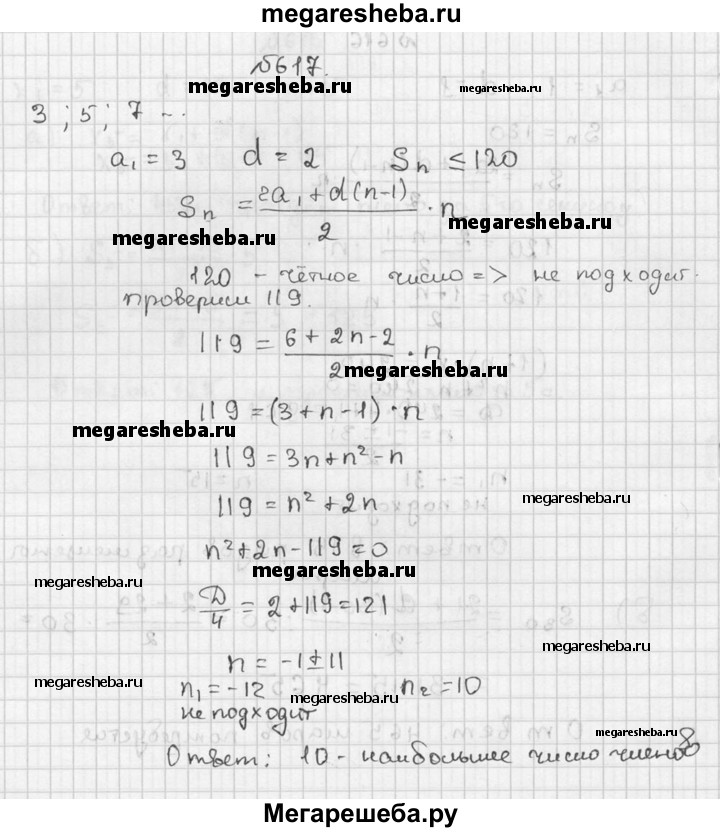 megaresheba.ru
№617.
megaresheba.ru megaresheba.ru
3 ; 5 ; 7 ...
a₁ = 3 d = 2 Sₙ ≤ 120
Sₙ = (2a₁ + d(n-1))/2 · n
megaresheba.ru megaresheba.ru
120 - чётное число => не подходит.
проверим 119.
119 = (6 + 2n - 2)/2 · n
megaresheba.ru
119 = (3 + n - 1) · n
megaresheba.ru
119 = 3n + n² - n
119 = n² + 2n
megaresheba.ru
n² + 2n - 119 = 0
megaresheba.ru
megaresheba.ru
D/4 = 2 + 119 = 121
n = -1 ± 11
megaresheba.ru
n₁ = -12 n₂ = 10
megaresheba.ru megaresheba.ru
не подходит
megaresheba.ru
Ответ: 10 - наибольшее число членов
Мегарешеба.ру